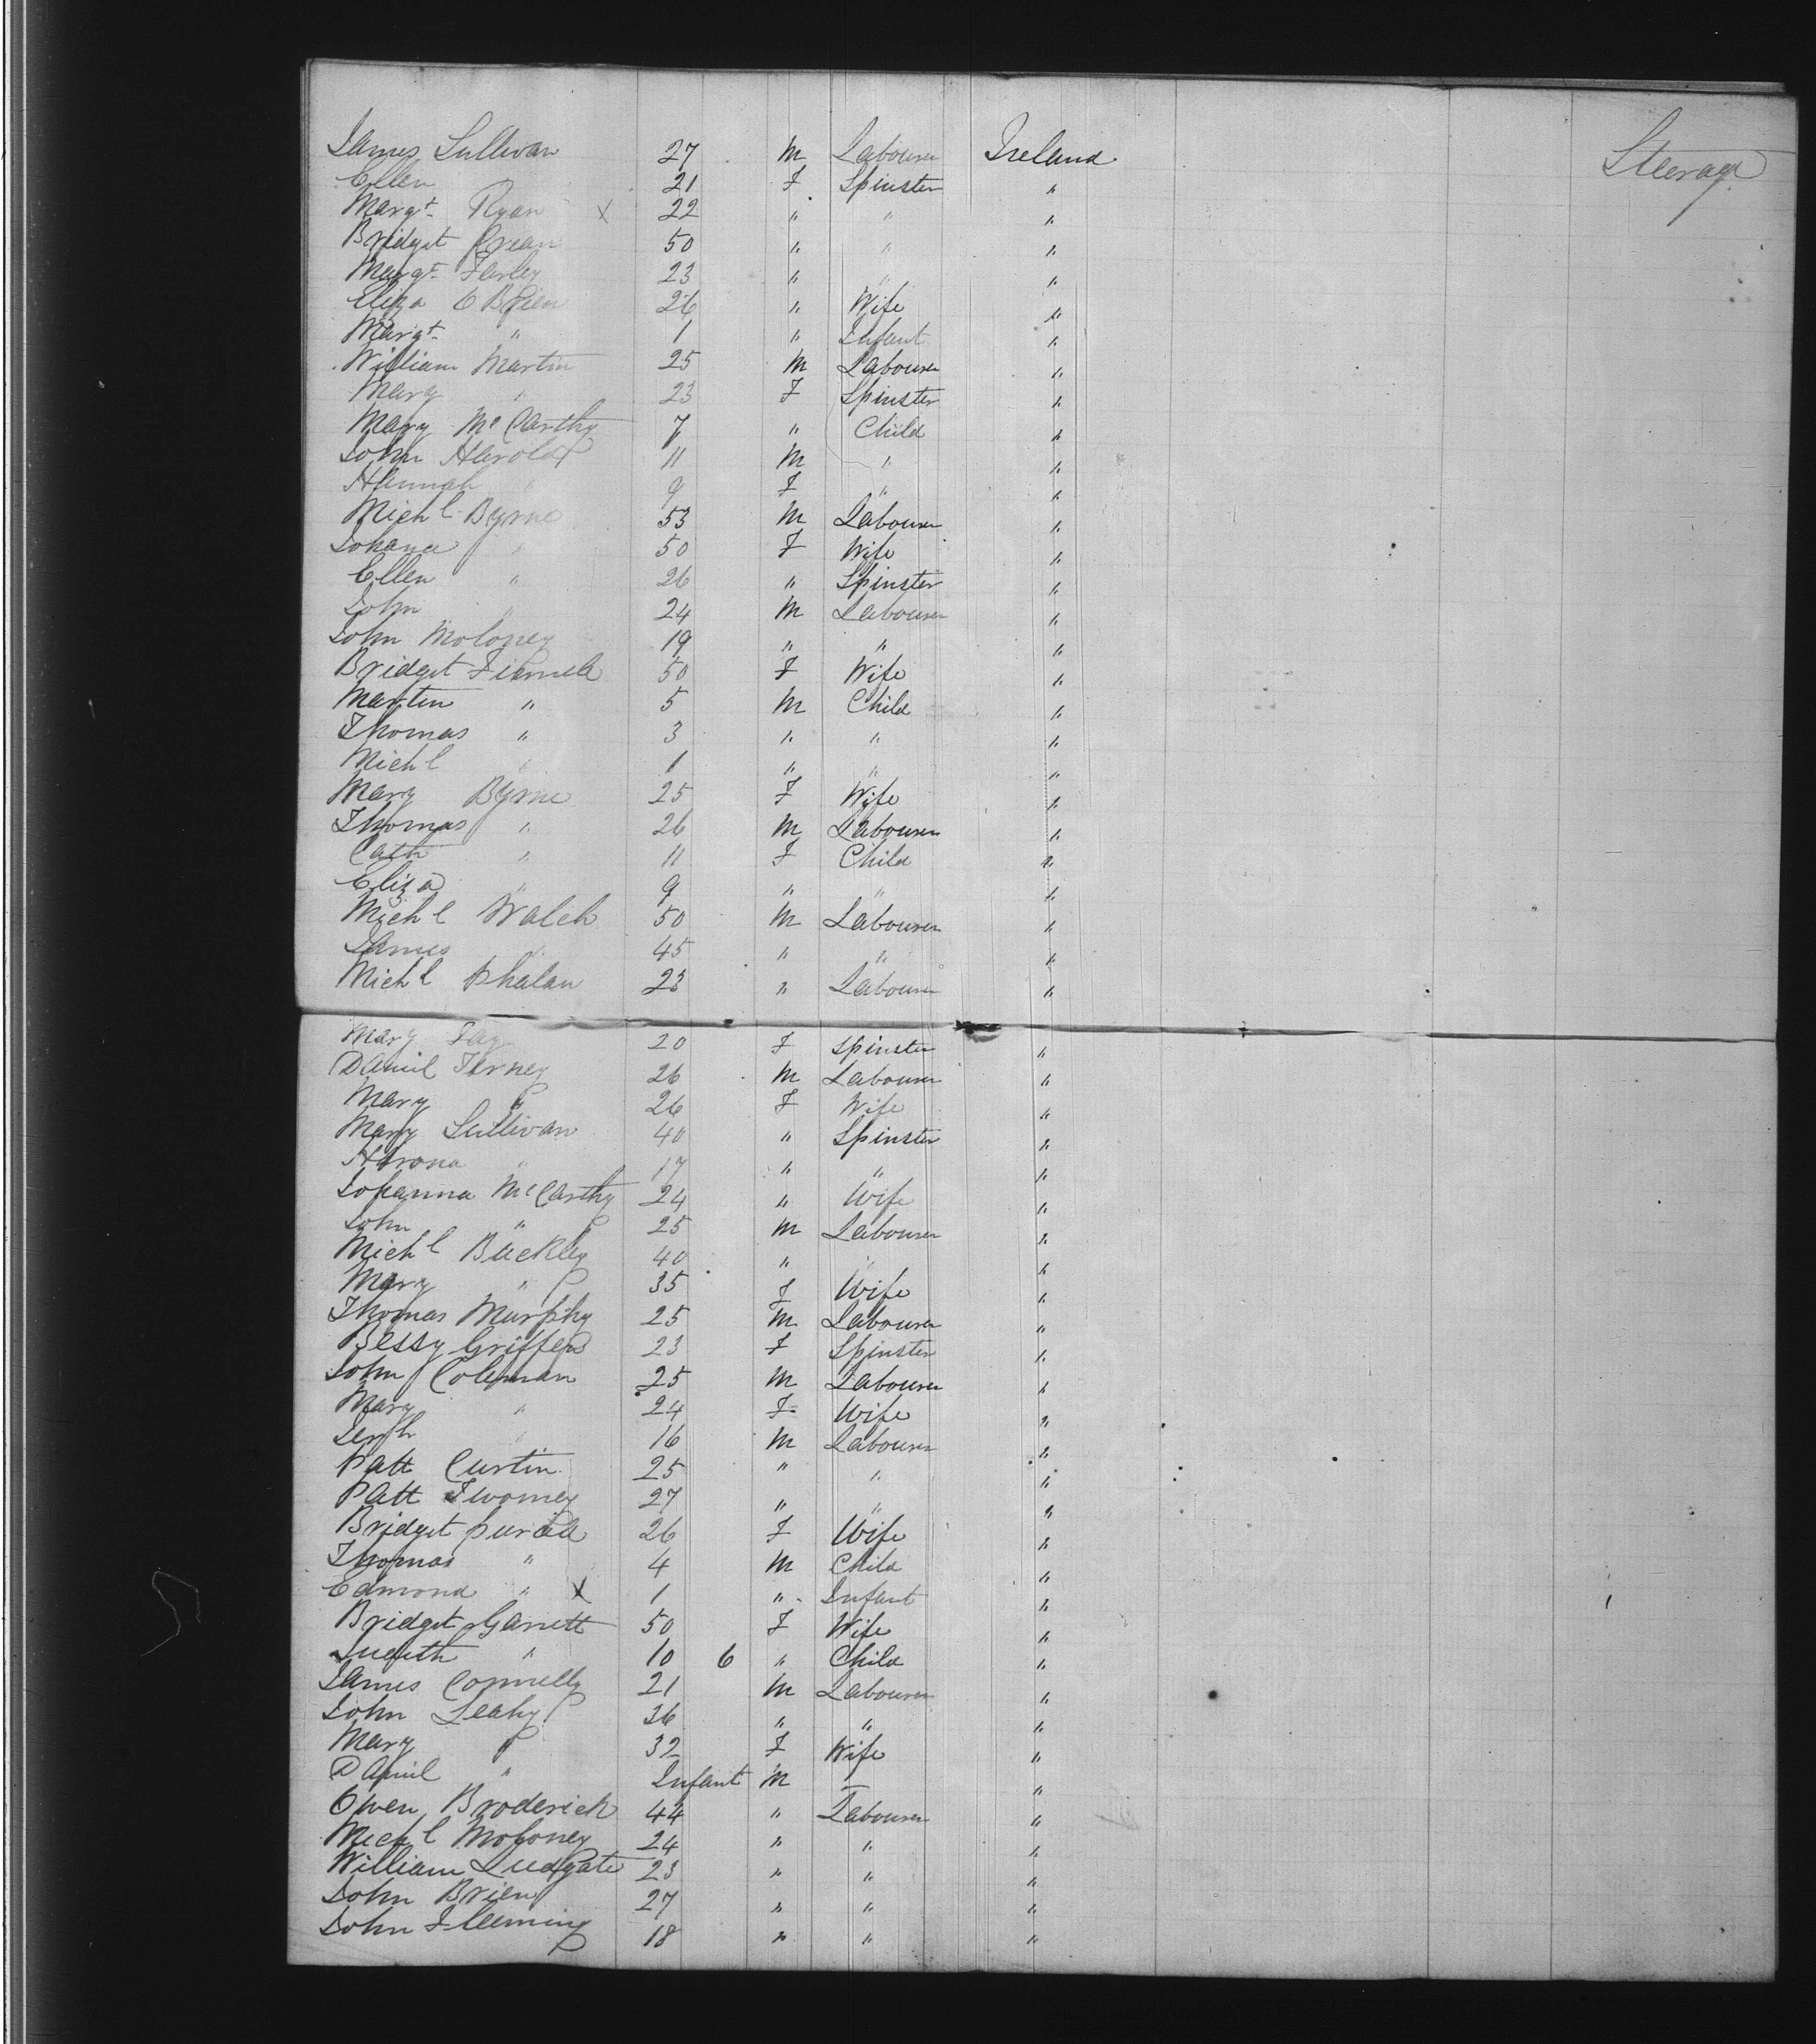 James Sullivan 27 M Labourer Ireland Steerage
Ellen 21 F Spinster "
Margt. Ryan X 22 " " "
Bridget Crean 50 " " "
Margt. Farley 23 " " "
Eliza O Brien 26 " Wife "
Margt. " 1 " Infant "
William Martin 25 M Labourer "
Mary " 23 F Spinster "
Mary Mc Carthy 7 " Child "
John Harold 11 M " "
Hannah " 9 F " "
Michl Byrne 53 M Labourer "
Johana " 50 F Wife "
Ellen " 26 " Spinster "
John " 24 M Labourer "
John Moloney 19 " " "
Bridget 50 F Wife "
Martin " 5 M Child "
Thomas " 3 " " "
Michl " 1 " " "
Mary Byrne 25 F Wife "
Thomas " 26 M Labourer "
Cath " 11 F Child "
Eliza " 9 " " "
Michl Walch 50 M Labourer "
James " 45 " " "
Michl Phalan 23 " Labourer "
Mary Fay 20 F Spinster "
Daniel Terney 26 M Labourer "
Mary " 26 F Wife "
Mary Sullivan 40 " Spinster "
Norona " 17 " " "
Johanna McCarthy 24 " Wife "
John " 25 M Labourer "
Michl Buckley 40 " " "
Mary " 35 F Wife "
Thomas Murphy 25 M Labourer "
Bessy 23 F Spinster "
John Coleman 25 M Labourer "
Mary " 24 F Wife "
" 16 M Labourer "
Patt Curtin 25 " " "
Patt Twomey 27 " " "
Bridget purcell 26 F Wife "
Thomas " 4 M Child "
Edmond " X 1 " Infant "
Bridget Garrett 50 F Wife "
Judith " 10 6 " Child "
James Connelly 21 M Labourer "
John Leahy 36 " " "
Mary " 32 F Wife "
Daniel " Infant M — "
Owen Broderick 44 " Labourer "
Michl Moloney 24 " " "
William Ludgate 23 " " "
John Brien 27 " " "
John Fleeming 18 " " "